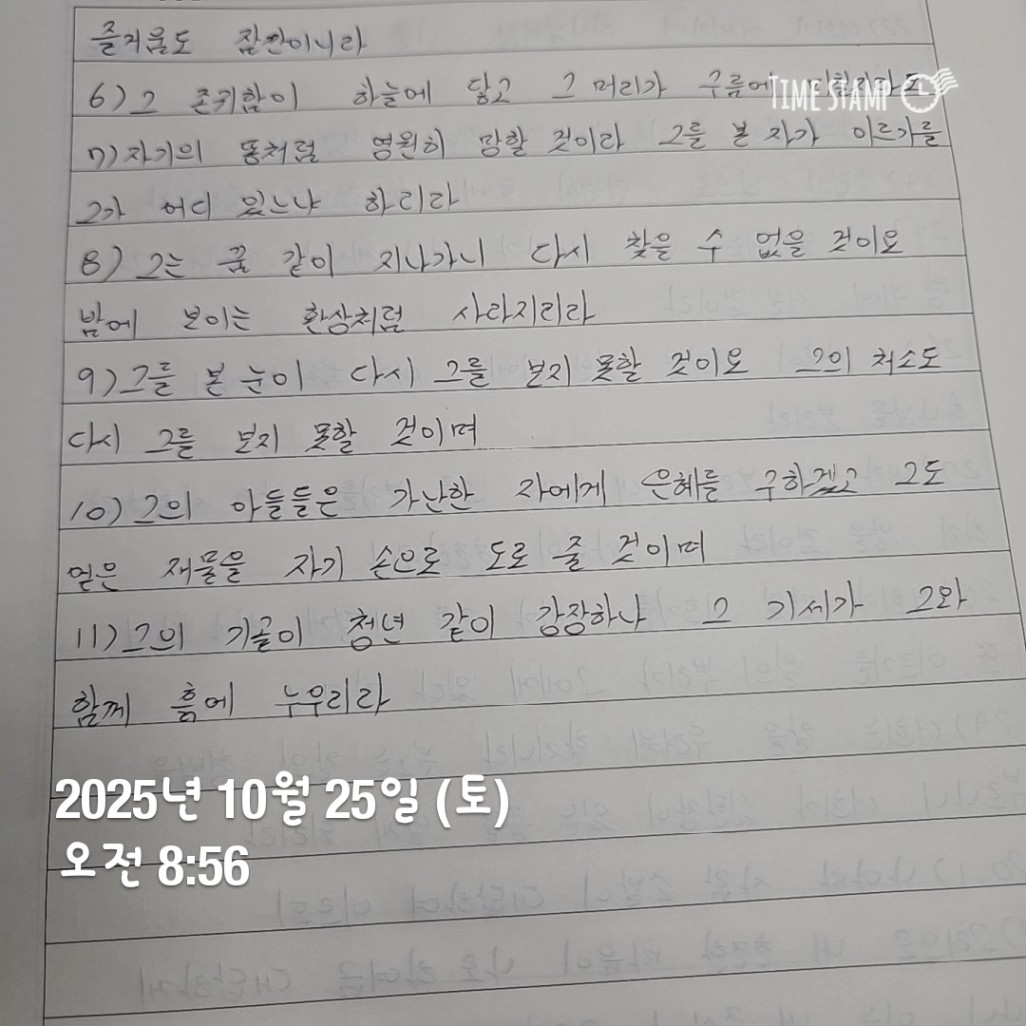 즐거움도 잠깐이니라
6) 그 존귀함이 하늘에 닿고 그 머리가 구름에
TIME STAMP
7) 자기의 똥처럼 영원히 망할 것이라 그를 본 자가 이르기를
그가 어디 있느냐 하리라
8) 그는 꿈 같이 지나가니 다시 찾을 수 없을 것이요
밤에 보이는 환상처럼 사라지리라
9) 그를 본 눈이 다시 그를 보지 못할 것이요 그의 처소도
다시 그를 보지 못할 것이며
10) 그의 아들들은 가난한 자에게 은혜를 구하겠고 그도
얻은 재물을 자기 손으로 도로 줄 것이며
11) 그의 기골이 청년 같이 강장하나 그 기세가 그와
함께 흙에 누우리라
2025년 10월 25일 (토)
오전 8:56